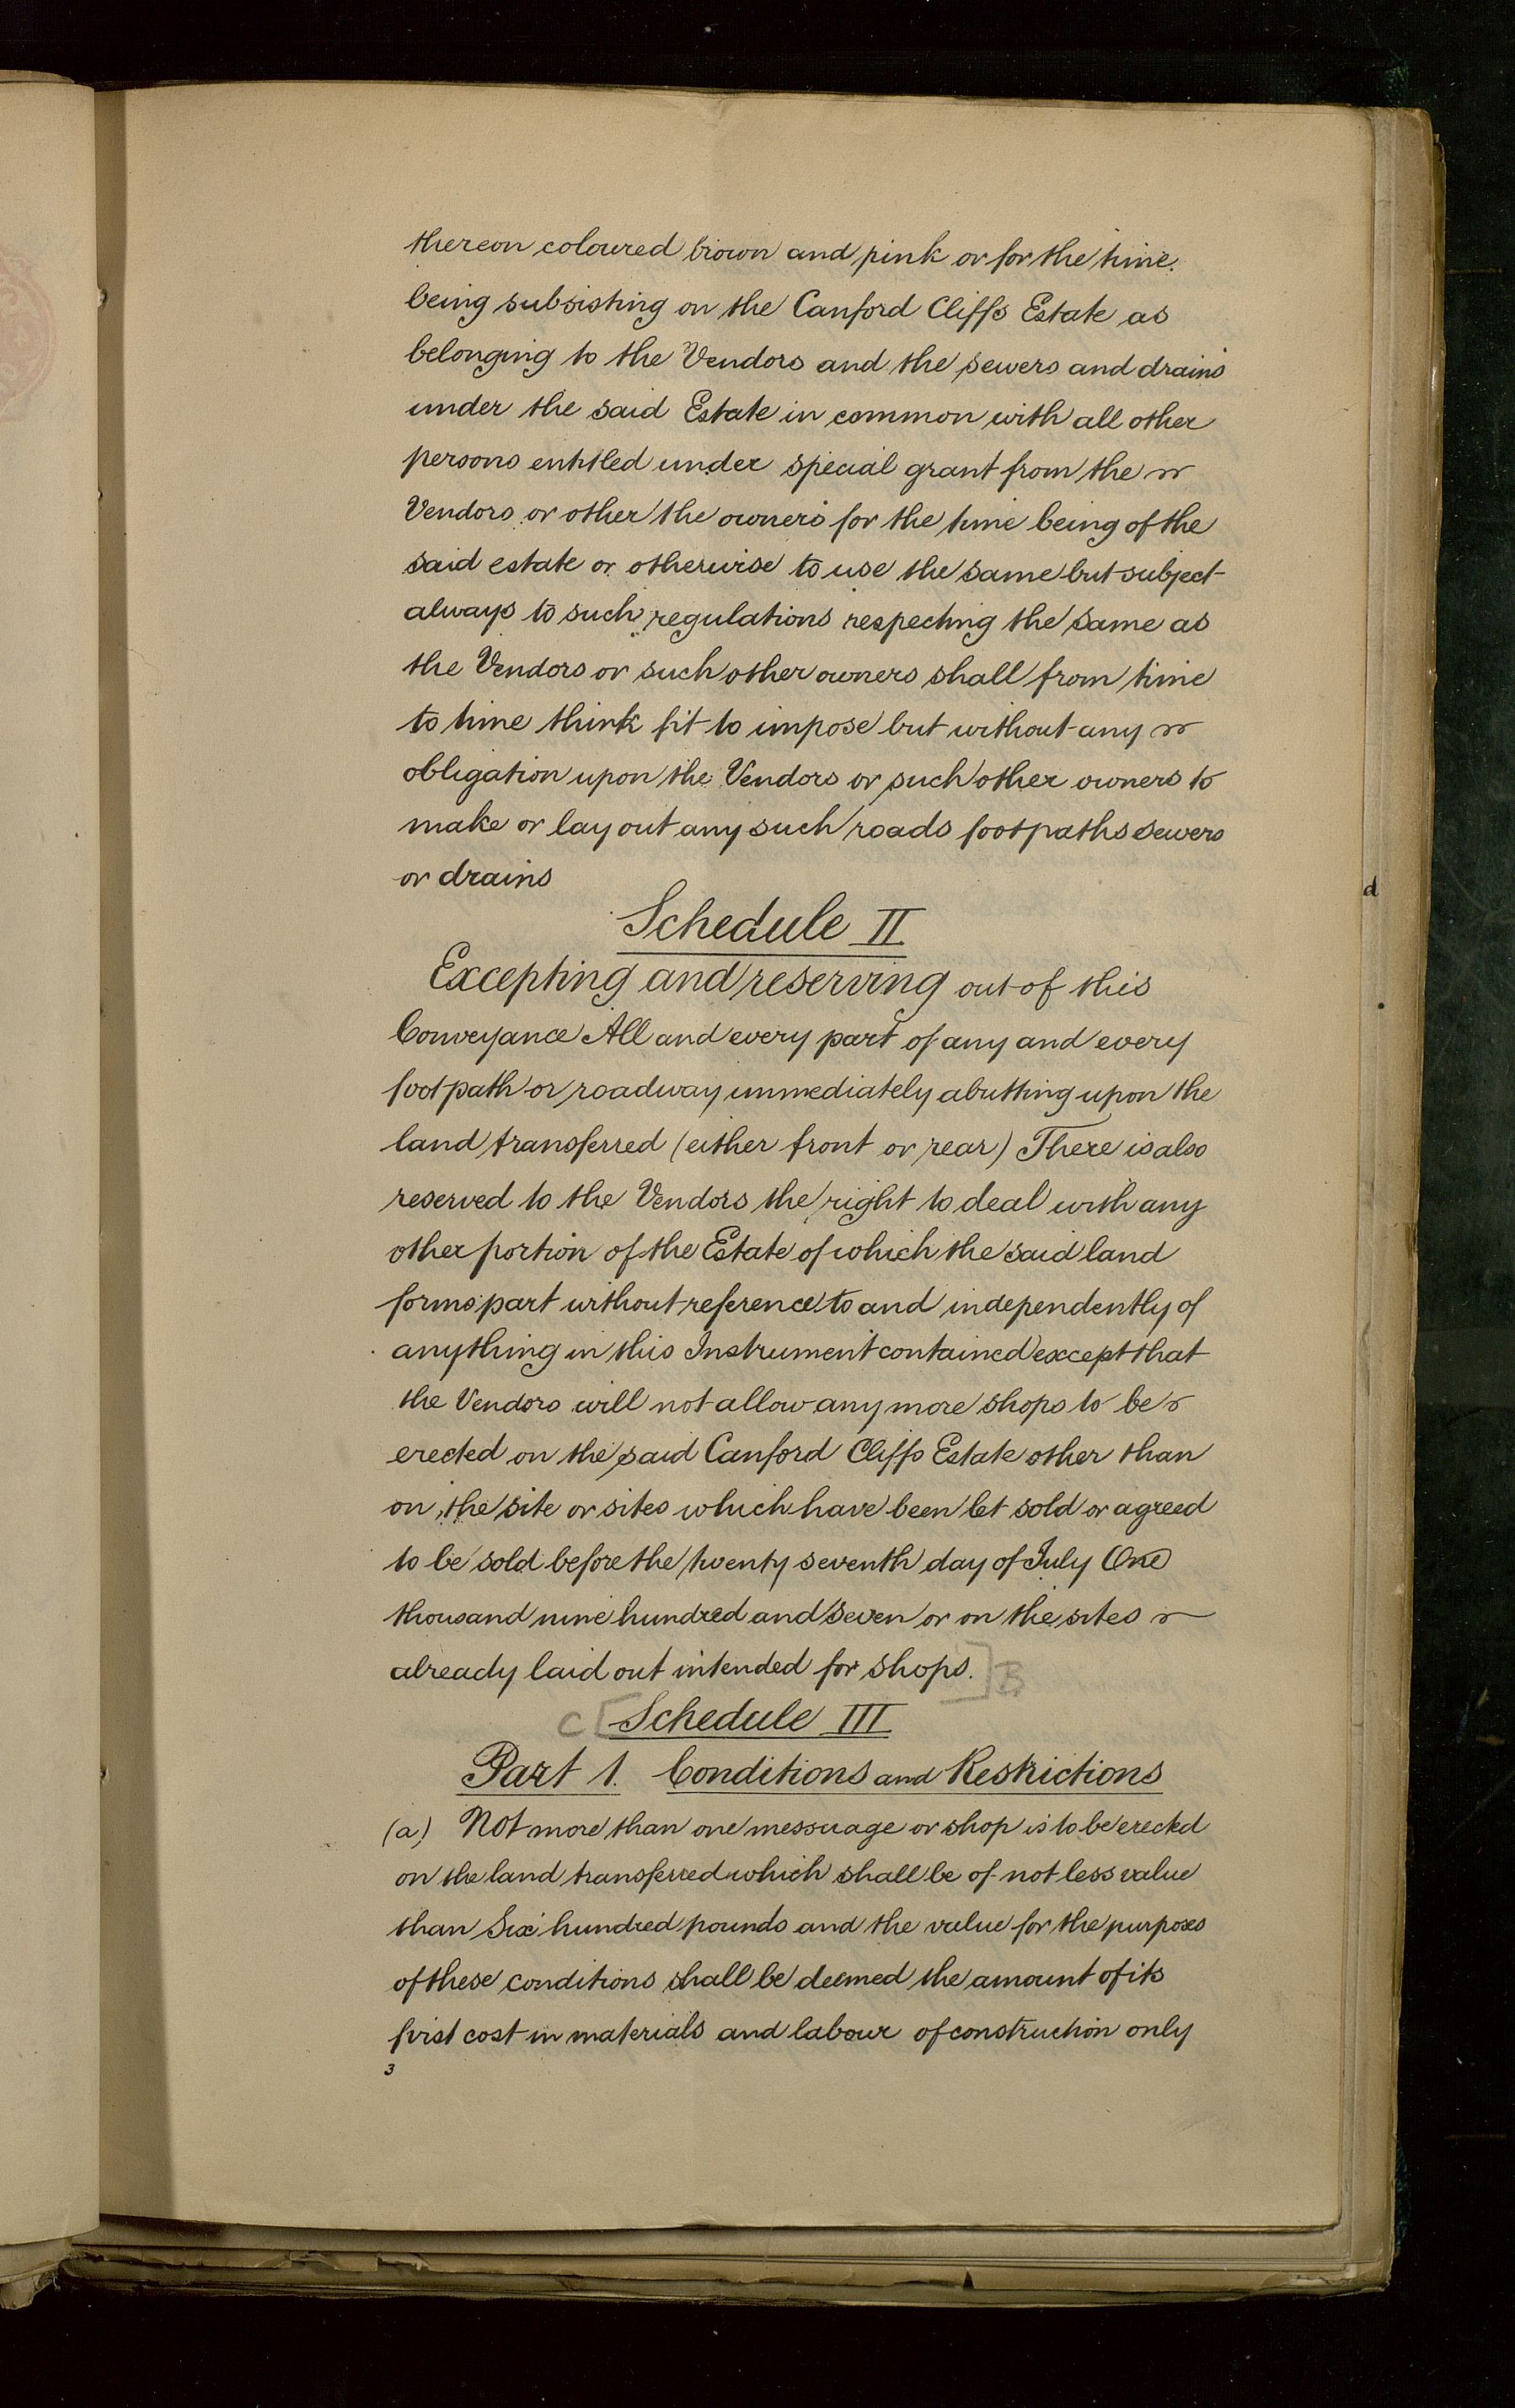 thereon coloured brown and pink or for the time
being subsisting on the Canford Cliffs Estate as
belonging to the Vendors and the sewers and drains
under the said Estate in common with all other
persons entitled under special grant from the
Vendors or other the owners for the time being of the
said estate or otherwise to use the same but subject
always to such regulations respecting the same as
the Vendors or such other owners shall from time
to time think fit to impose but without any
obligation upon the Vendors or such other owners to
make or lay out any such roads footpaths sewers
or drains
d
Schedule II
Excepting and reserving out of this
Conveyance All and every part of any and every
footpath or roadway immediately abutting upon the
land transferred (either front or rear) There is also
reserved to the Vendors the right to deal with any
other portion of the Estate of which the said land
forms part without reference to and independently of
anything in this Instrument contained except that
the Vendors will not allow any more shops to be
erected on the said Canford Cliffs Estate other than
on the site or sites which have been let sold or agreed
to be sold before the twenty seventh day of July One
thousand nine hundred and seven or on the sites
already laid out intended for shops. ] B
C [ Schedule III
Part 1. Conditions and Restrictions
(a) Not more than one messuage or shop is to be erected
on the land transferred which shall be of not less value
than Six hundred pounds and the value for the purposes
of these conditions shall be deemed the amount of its
first cost in materials and labour of construction only
3